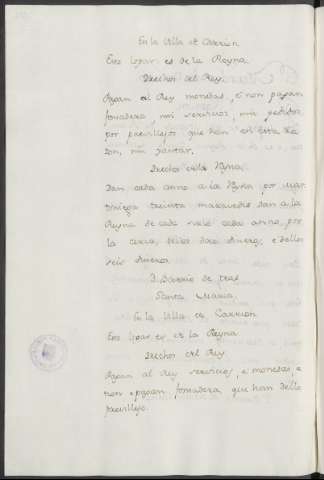 En la Villa de Carrion
Este logar es de la Reyna
Derechos del Rey
Pagan al Rey monedas, e non pagan
fonsadera, nin servicios, nin pedidos
por previllejos que han en esta ra
zon, nin yantar.
Derechos de la Reyna
Dan cada anno a la Reyna por mar
tiniega treinta maravedis dan a la
Reyna de cada solo cada anno, por
la cerca, dellos doce dineros, e dellos
seis dineros
Barrio de tras
Santa Maria.
En la Villa de Carrion
Este logar es de la Reyna
Derechos del Rey
Pagan al Rey servicios, e monedas, e
non pagan fonsadera, que han dello
previllejo.